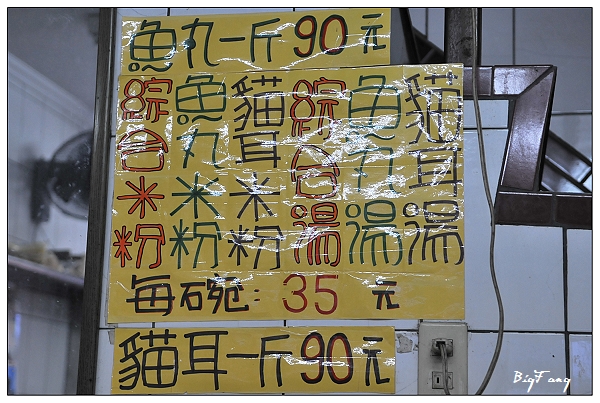 魚丸一斤90元
綜合米粉
魚丸米粉
貓耳米粉
綜合湯
魚丸湯
貓耳湯
每碗：35元
貓耳一斤90元
BigFang